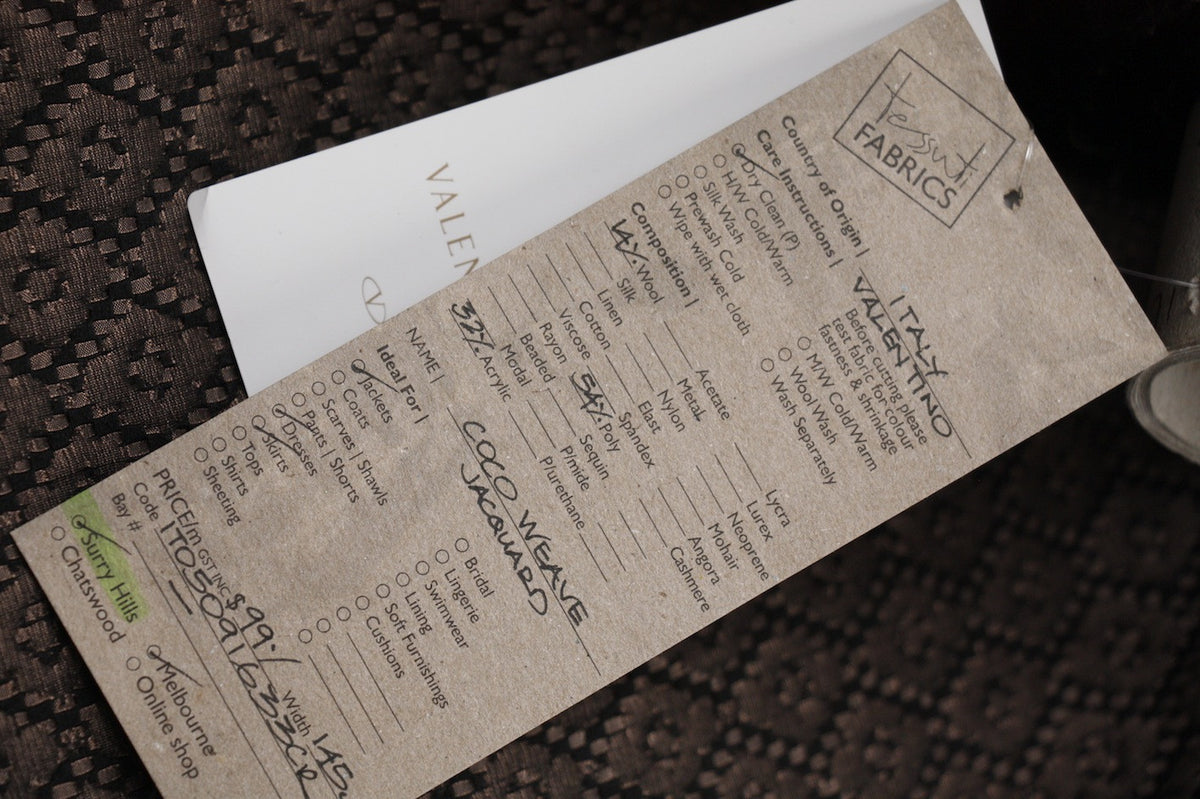 tessuti
FABRICS
Country of Origin | ITALY
VALENTINO
Care Instructions | Before cutting please
test fabric for colour
fastness & shrinkage
Dry Clean (P)
H/W Cold/Warm
M/W Cold/Warm
Silk Wash
Wool Wash
Prewash Cold
Wash Separately
Wipe with wet cloth
Composition |
14% Wool
Acetate
Lycra
Silk
Metal
Lurex
Linen
Nylon
Neoprene
Cotton
Elast
Mohair
Viscose
Spandex
Angora
Rayon
54% Poly
Cashmere
Beaded
Sequin
Modal
P/mide
32% Acrylic
P/urethane
NAME | COCO WEAVE
JACQUARD
Ideal For |
Jackets
Bridal
Coats
Lingerie
Scarves | Shawls
Swimwear
Pants | Shorts
Lining
Dresses
Soft Furnishings
Skirts
Cushions
Tops
Shirts
Sheeting
PRICE/m GST INC $99./ Width 145
Code
Bay #
Surry Hills
Melbourne
Chatswood
Online shop
VALEN